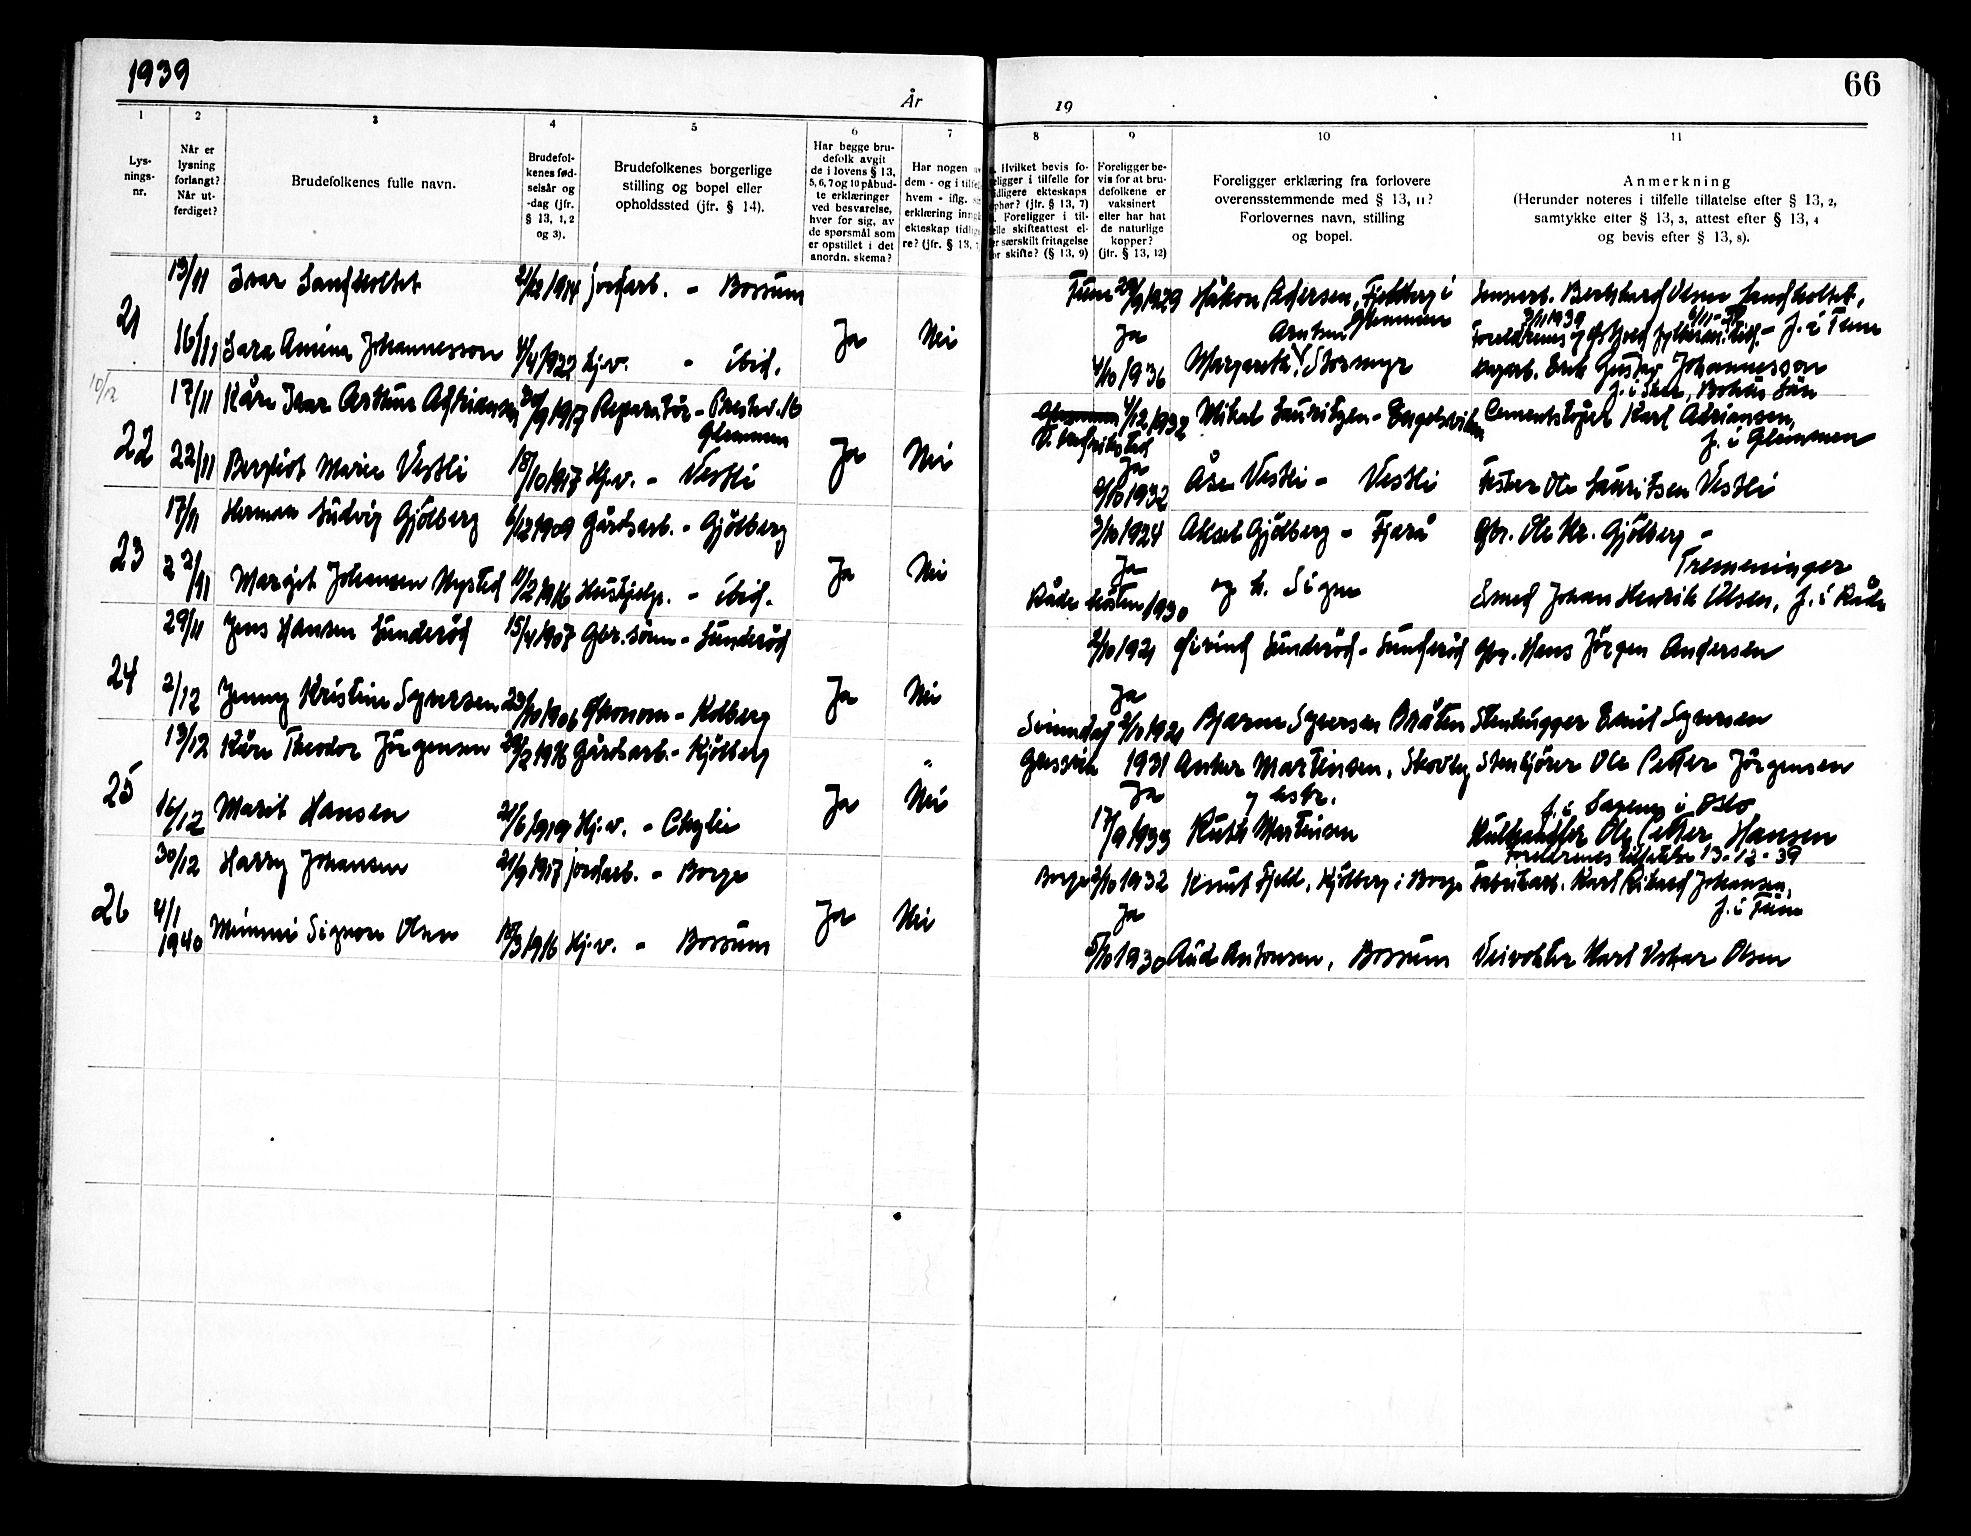 1939
År
19
66
1
2
3
4
5
6
7
8
9
10
11
Lys-
nings-
nr.
Når er
lysning
forlangt?
Når ut-
ferdiget?
Brudefolkenes fulle navn.
Brudefol-
kenes fød-
selsår og
-dag (jfr.
§ 13, 1, 2
og 3).
Brudefolkenes borgerlige
stilling og bopel eller
opholdssted (jfr. § 14).
Har begge bru-
defolk avgit
de i lovens § 13,
5, 6, 7 og 10 påbud-
te erklæringer
ved besvarelse,
hver for sig, av
de spørsmål som
er opstillet i det
anordn. skema?
Har nogen
dem - og i
hvem - iflg.
erklæring
ekteskap
re? (jfr. § 13,
Hvilket bevis fo-
religger i tilfelle for
tidligere ekteskaps
ophør? (jfr. § 13, 7)
Foreligger i til-
felle skifteattest el-
ler særskilt fritagelse
for skifte? (§ 13, 9)
Foreligger be-
vis for at bru-
defolkene er
vaksinert
eller har hat
de naturlige
kopper?
(jfr. § 13, 12)
Foreligger erklæring fra forlovere
overensstemmende med § 13, 11?
Forlovernes navn, stilling
og bopel.
Anmerkning
(Herunder noteres i tilfelle tillatelse efter § 13, 2,
samtykke efter § 13, 3, attest efter § 13, 4
og bevis efter § 13, 8).
21
13/11 Ivar Sandholtet 1914 jordarb. - Borsum
Tune 1929 Håkon Pedersen, Fjeldberg i
Glemmen
Bernhard Olsen Sandholtet,
f. i Tune
16/11 Sara Amina Johannesson 4/4 1922 hj.v. - ibid.
Ja Nei
Ja
4/10 1936 Margareth Arntsen Stormyr
3/11 1939
Foreldrenes og Østfold
Erik Gustav Johannesson
10/12
22
17/11 Kåre Ivar Arthur Adriansen 1917 Reparatör - Prestev. 16
Glemmen
4/12 1932 Mikal Lauritzen - Engelsviken
Cementstöper Karl Adriansen,
f. i Glemmen
22/11 Bergliot Marie Vestli 18/10 1917 Hj.v. - Vestli
Ja Nei
Ja
1932 Åse Vestli - Vestli
Fisker Ole Lauritsen Vestli
23
17/11 Herman Ludvig Gjölberg 6/12 1909 Gårdsarb. - Gjölberg
3/10 1924 Aksel Gjölberg - Fjærå
Gbr. Ole Kr. Gjölberg -
Tremeninger
22/11 Margit Johansen Nysted 1916 Hushjelp. - ibid.
Ja Nei
Ja
Råde hösten 1930 og h. Signe
Smed Johan Henrik Olsen, f. i Råde
24
29/11 Jens Hansen Sunderöd 15/4 1907 Gbr.sönn - Sunderöd
2/10 1921 Eivind Sunderöd - Sunderöd
Gbr. Hans Jörgen Andersen
2/12 Jenny Kristine Syversen 23/10 1906 Økonom - Kolberg
Ja Nei
Ja
Svinndal 2/10 1921 Bjarne Syversen Bråten
Stenhugger Emil Syversen
25
13/12 Kåre Theodor Jörgensen 1916 Gårdsarb. - Kjölberg
Gressvik 1931 Anker Martinsen, Skovly
Stenkjörer Ole Petter Jörgensen
16/12 Marit Hansen 21/6 1919 Hj.v. -
Ja Nei
Ja
17/9 1933 og hstr.
Ruth Martinsen
Kulhandler Ole Petter Hansen
Foreldrenes tillatelse 13-12-39
26
30/12 Harry Johansen 21/9 1917 jordarb. - Borge
Borge 3/10 1932 Knut Fjeld, Kjölberg i Borge
Fabrikarb. Karl Rikard Johansen,
f. i Tune
4/1
1940 Mimmi Signora Olsen 18/3 1916 Hj.v. - Borsum
Ja Nei
Ja
5/10 1930 Aud Antonsen, Borsum
Veivokter Karl Oskar Olsen